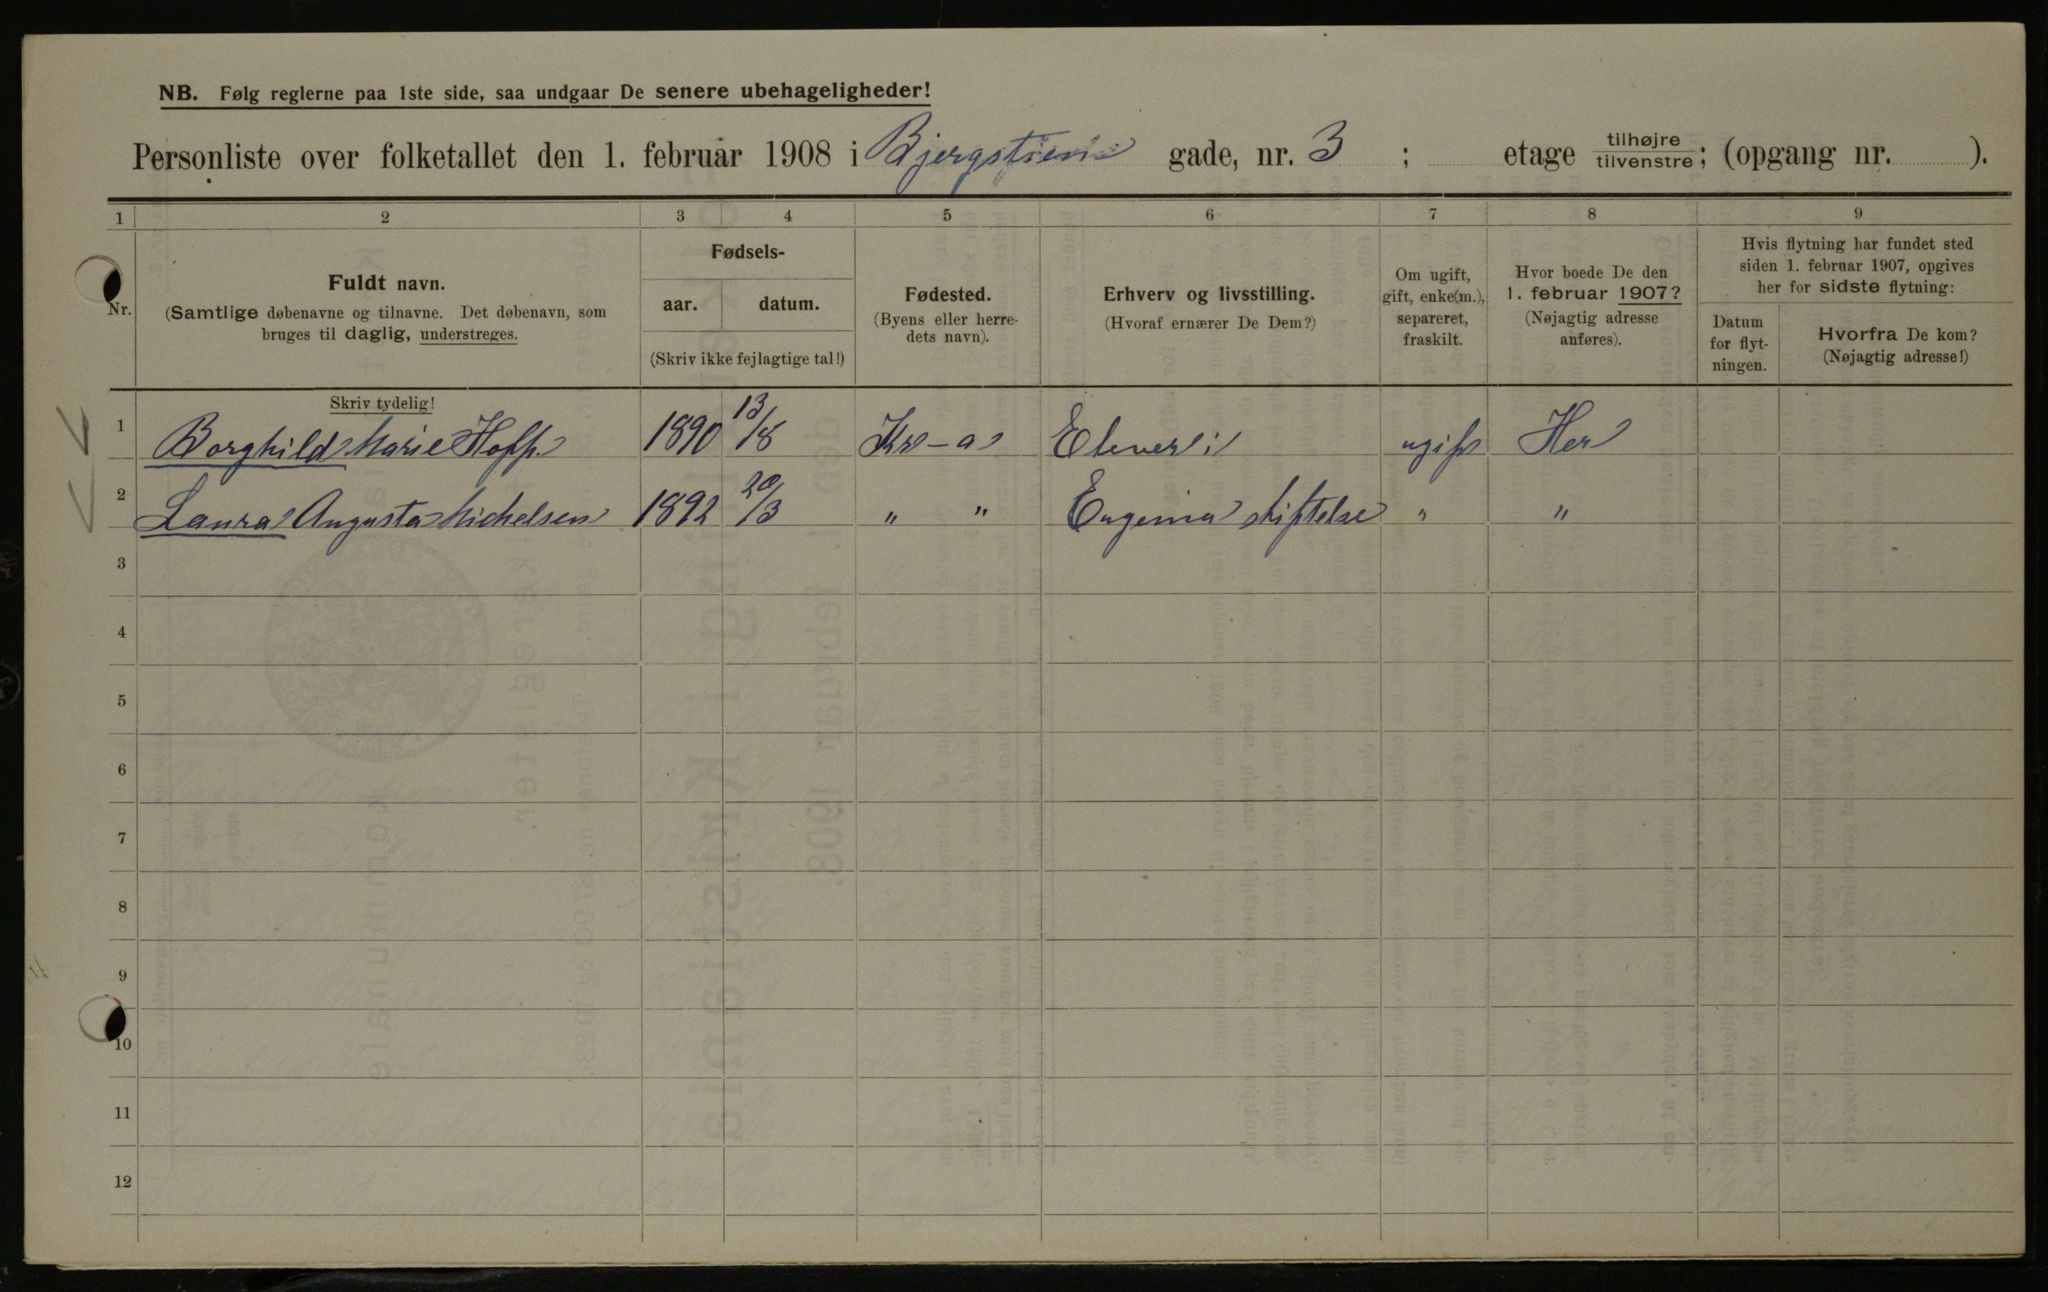 NB. Følg reglerne paa 1ste side, saa undgaar De senere ubehageligheder!
Personliste over folketallet den 1. februar 1908 i Bjergstien gade, nr. 3 ; etage tilhøjre tilvenstre; (opgang nr. ).
1 2 3 4 5 6 7 8 9
Nr.
Fuldt navn.
(Samtlige døbenavne og tilnavne. Det døbenavn, som
bruges til daglig, understreges.
Fødsels-
aar. datum.
(Skriv ikke fejlagtige tal!)
Fødested.
(Byens eller herre-
dets navn).
Erhverv og livsstilling.
(Hvoraf ernærer De Dem?)
Om ugift,
gift, enke(m.),
separeret,
fraskilt.
Hvor boede De den
1. februar 1907?
(Nøjagtig adresse
anføres).
Hvis flytning har fundet sted
siden 1. februar 1907, opgives
her for sidste flytning:
Datum
for flyt-
ningen.
Hvorfra De kom?
(Nøjagtig adresse!)
Skriv tydelig!
1 Borghild Marie Hoff. 1890 13/8 Kr-a Elever i ugift Her
2 Laura Augusta Michelsen 1892 20/3 " " Eugenia stiftelse " "
3
4
5
6
7
8
9
10
11
12